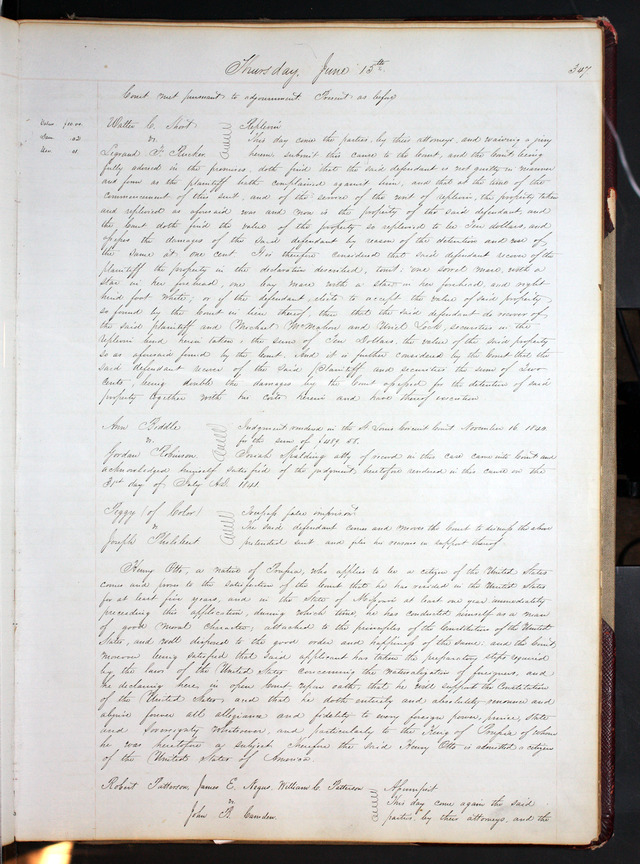 Thursday, June 15th. 347
Court met pursuant to adjournment. Present as before
Walter C. Short
vs
Legrand F. Rucker
Replevin
This day come the parties, by their attorneys, and waiving a jury
herein submit this cause to the Court, and the Court being
fully advised in the premises, doth find that the said defendant is not guilty in manner
and form as the plaintiff hath complained against him, and that at the time of the
commencement of this suit, and of the service of the writ of replevin, the property taken
and replevied as aforesaid was and now is the property of the said defendant, and
the Court doth find the value of the property so replevied to be Ten dollars, and
assess the damages of the said defendant by reason of the detention and use of
the same at one cent It is therefore considered that said defendant recover of the
plaintiff the property in the declaration described, to wit: one sorrel mare with a
star in her forehead, one bay mare with a star in her forehead and right
hind foot white; or if the defendant elects to accept the value of said property
so found by the Court in lieu thereof, then that the said defendant do recover of
the said plaintiff and Michael McMahon and Uriel Lock, securities in the
replevin bond herein taken, the sum of Ten Dollars, the value of the said property
so as aforesaid found by the Court. And it is further considered by the Court that the
said defendant recover of the said Plaintiff and securities the sum of two
cents, being double the damages by the Court assessed for the detention of said
property together with his costs herein and have thereof execution
Ann Biddle
vs.
Jordan Robinson
Judgment rendered in the St Louis Circuit Court November 16. 1840
for the sum of $489 88.
Josiah Spalding atty of record in this case came into Court and
acknowledged himself satisfied of the judgment heretofore rendered in this cause on the
31st day of July A.D. 1841.
Peggy (of Color)
vs
Joseph
Trespass false imprisont
The said defendant comes and moves the Court to dismiss the above
pretended suit and files his reasons in support thereof
Henry Otto, a native of Prussia, who applies to be a citizen of the United States
comes and proves to the satisfaction of the Court that he has resided in the United States
for at least five years, and in the State of Missouri at least one year immediately
preceding this application, during which time, he has conducted himself as a man
of good moral character, attached to the principles of the Constitution of the United
States, and well disposed to the good order and happiness of the same: and the Court
moreover being satisfied that said applicant has taken the preparatory steps required
by the laws of the United States concerning the naturalization of foreigners, and
he declaring here in open Court upon oath, that he will support the Constitution
of the United States and that he doth entirely and absolutely renounce and
abjure forever all allegiance and fidelity to every foreign power, prince, state
and Sovereignty Whatsoever, and particularly to the King of Prussia of whom
he was heretofore a subject Therefore the said Henry Otto is admitted a citizen
of the United States of America.
Robert Patterson, James E. Negus, William C. Patterson
vs
John B. Camden
Assumpsit
This day come again the said
parties by their attorneys, and the